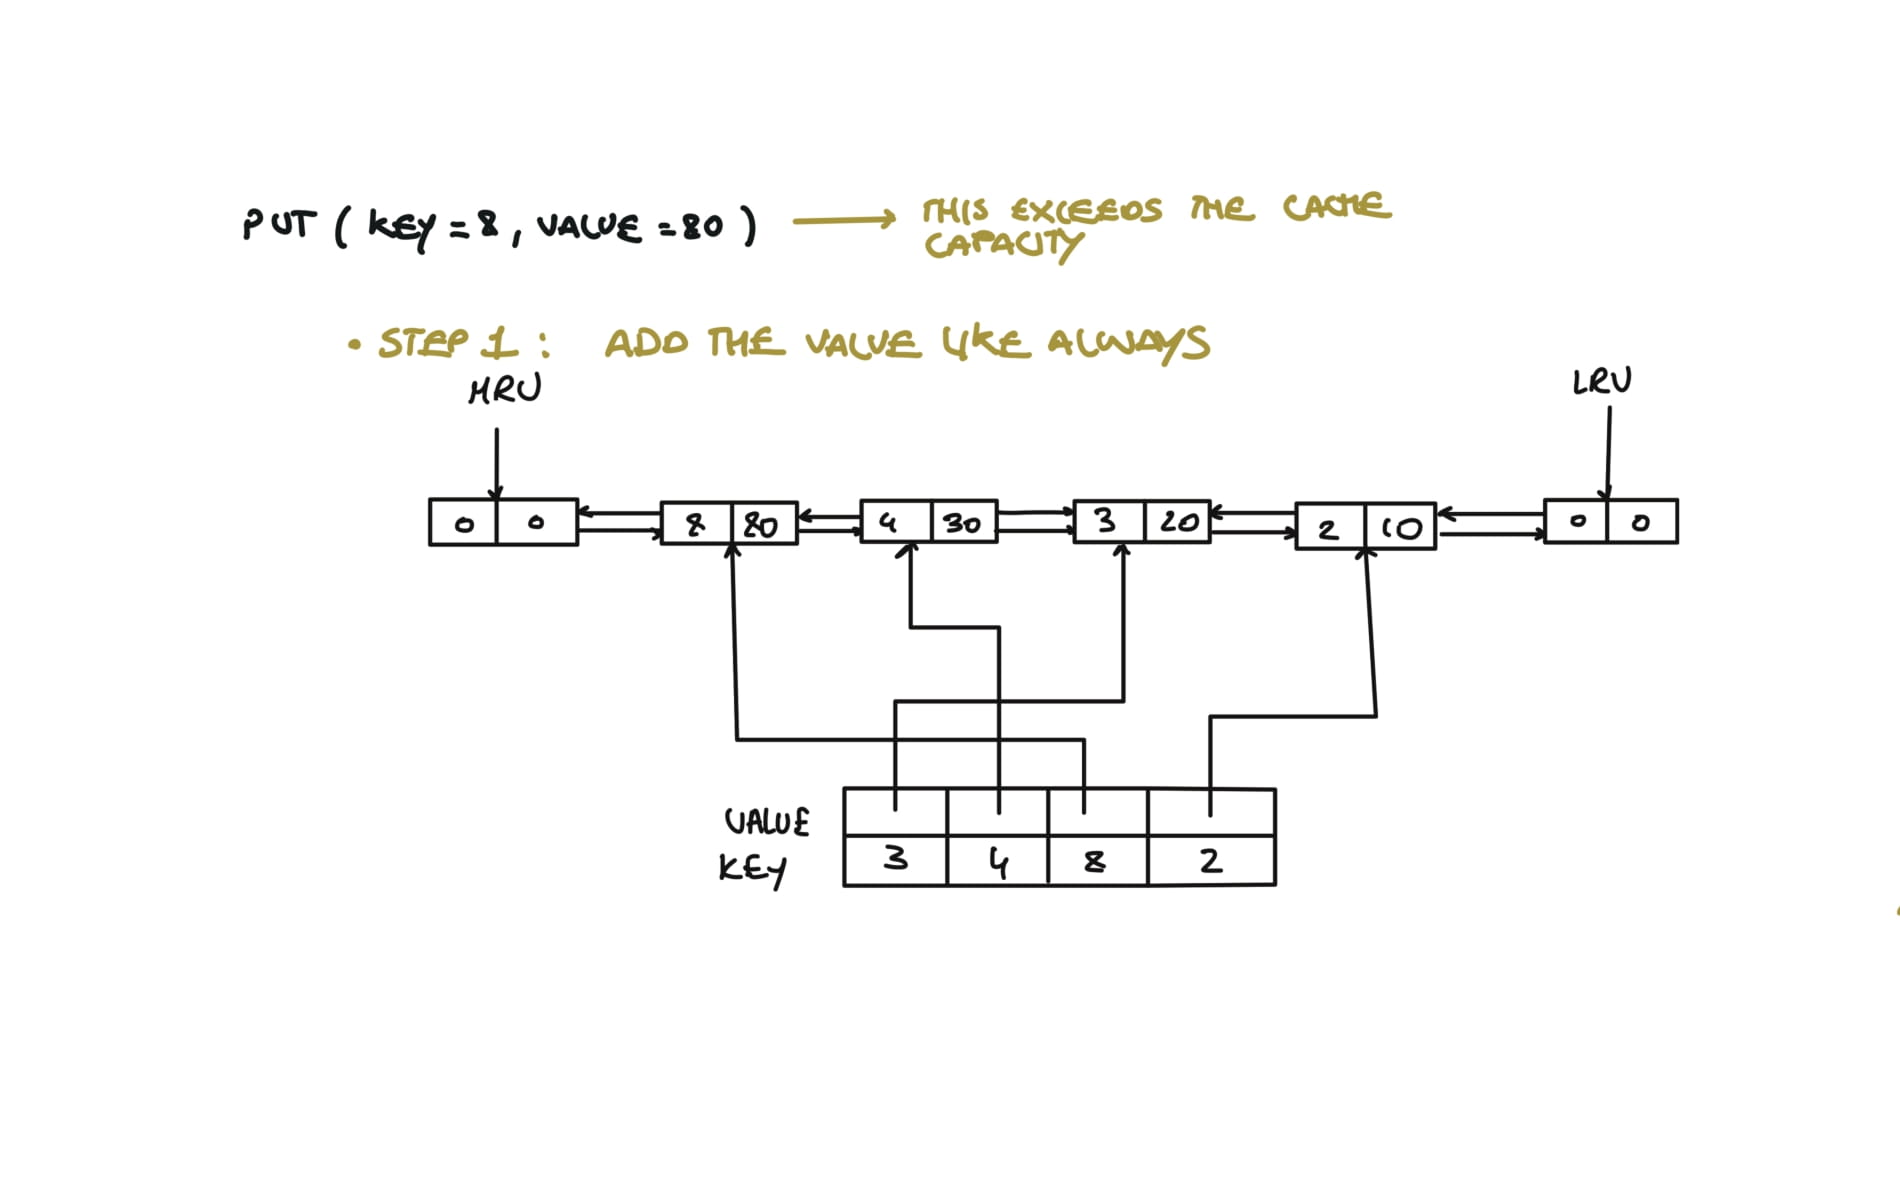 PUT ( KEY = 8, VALUE = 80 )
THIS EXCEEDS THE CACHE
CAPACITY
• STEP 1 : ADD THE VALUE LIKE ALWAYS
MRU
LRU
0 0 8 80 4 30 3 20 2 10 0 0
VALUE
KEY 3 4 8 2